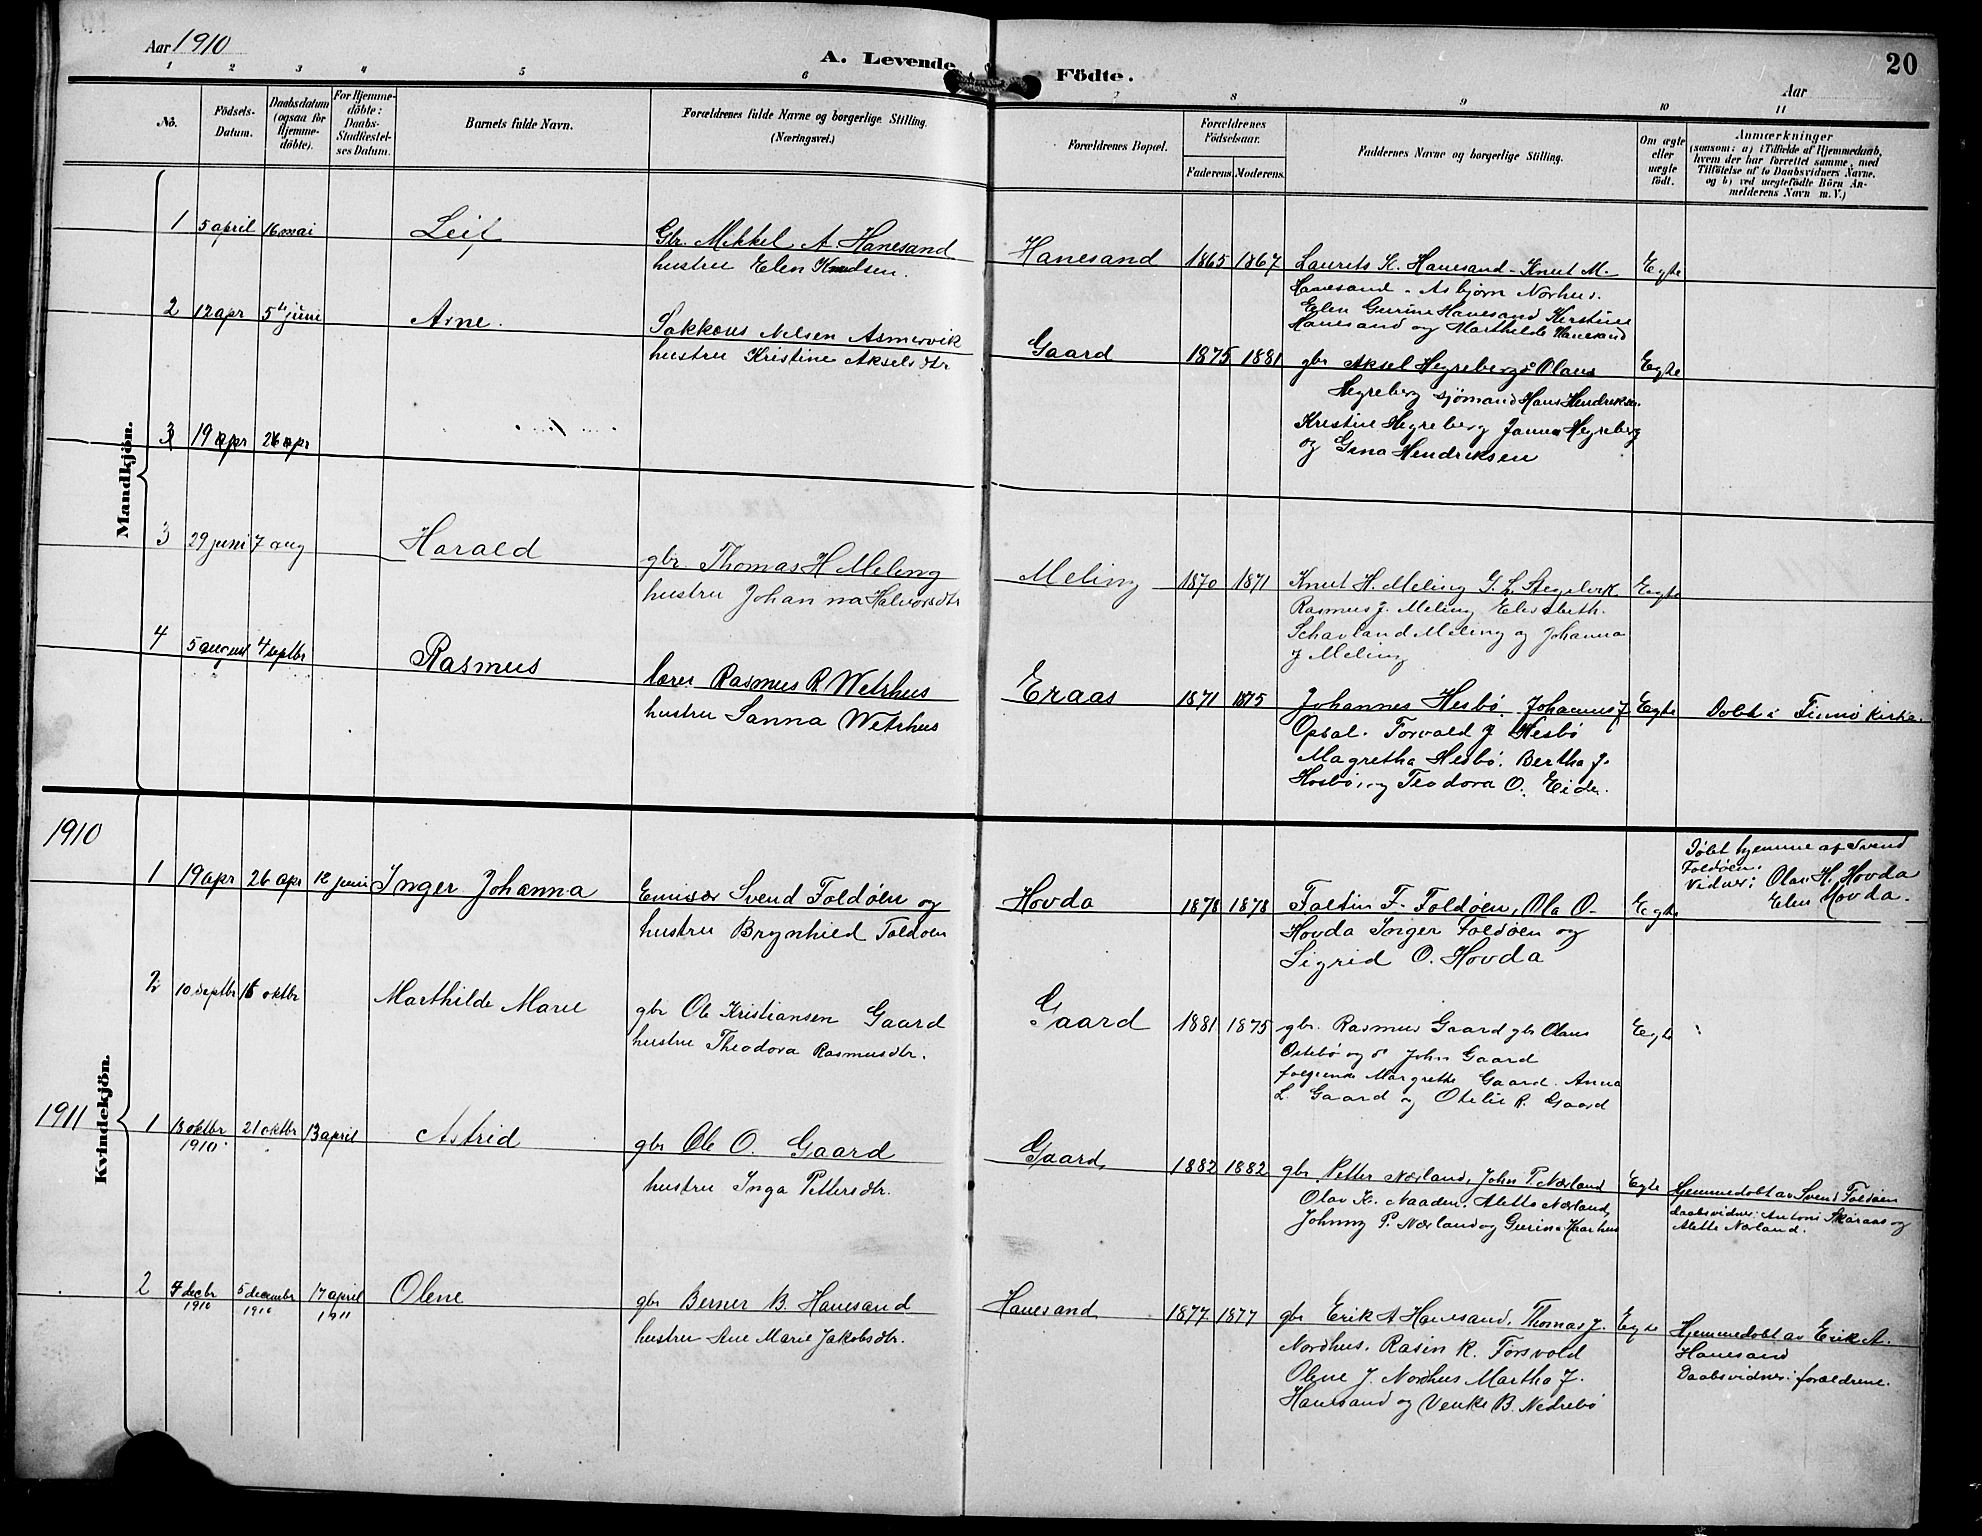 Aar 1910
A. Levende Födte.
20
Aar
1 2 3 4 5 6 7 8 9 10 11
No.
Födsels-
Datum.
Daabsdatum
(ogsaa for
Hjemme-
döbte).
For Hjemme-
döbte:
Daabs-
Stadfæstel-
ses Datum.
Barnets fulde Navn.
Forældrenes fulde Navne og borgerlige Stilling.
(Næringsvei.)
Forældrenes Bopæl.
Forældrenes
Födselsaar.
Faderens. Moderens.
Faddernes Navne og borgerlige Stilling.
Om ægte
eller
uægte
födt.
Anmærkninger
(saasom: a) i Tilfælde af Hjemmedaab,
hvem der har forrettet samme, med
Tilföielse af to Daabsvidners Navne.
og b) ved uægtefödte Börn An-
melderens Navn m. V.)
Mandkjön.
1 5 april 16 mai Leif Gbr. Mikkel A. Hanesand
hustru Elen Knudsen.
Hanesand 1865 1867 Laurits K. Hanesand - Knut M. Egte
Hanesand - Asbjørn Norhus.
Elen Gurine Hanesand Kirstine
Hanesand og Marthilde Hanesand
2 12 apr 5te juni Arne. Sakkeus Nelsen Asmervik
hustru Kristine Akselsdtr
Gaard 1875 1881 gbr Aksel Hegreberg Olaus Egte
Hegreberg sjömand Hans Hendriksen.
Kristine Hegreberg Janna Hegreberg
og Gina Hendriksen
3 19 apr 26 apr
3 29 juni 7 aug Harald gbr. Thomas H Meling
hustru Johanna Halvorsdtr
Meling 1870 1871 Knut H. Meling G. L. Stegelvik Egte
Rasmus J. Meling Elisabeth
Schavland Meling og Johanna
J Meling
4 5 august 4 septbr Rasmus lærer Rasmus R. Wetrhus
hustru Sanna Wetrhus
Eraas 1871 1875 Johannes Hesbö. Johannes J Egte Dobt i Finnö Kirke.
Opsal. Torvald J Hesbö
Magretha Hesbö. Bertha J.
Hesbö, og Teodora O. Eide.
1910
Kvindekjön.
1 19 apr 26 apr 12 juni Inger Johanna Emisær Svend Foldöen og
hustru Brynhild Foldöen
Hovda 1878 1878 Faltin F. Foldöen, Ola O. Egte
Hovda Inger Foldöen og
Sigrid O. Hovda
Döbt hjemme af Svend
Foldöen.
Vidner: Olav H. Hovda
Elen Hovda.
2 10 septbr 16 oktbr Marthilde Marie gbr Ole Kristiansen Gaard
hustru Theodora Rasmusdtr.
Gaard 1881 1875 gbr. Rasmus Gaard gbr Olaus Egte
Ostebö og do John Gaard
Margrethe Gaard. Anna
L. Gaard og Otelie R. Gaard
1911
1 13 oktbr 21 oktbr 13 april Astrid gbr Ole O. Gaard
1910.
hustru Inga Pettersdtr.
Gaard 1882 1882 gbr Petter Nærland, John P. Nærland Egte
Olav K. Naaden. Alette Nærland,
Johnny P. Nærland og Gurina Haarhus
Hjemmedobt av Svend Foldöen
daabsvidner: Antoni Skåraas og
Alette Nærland.
2 4 decbr 5 december 17 april Olene gbr Berner B. Hanesand
1910 1910 1911
hustru Ane Marie Jakobsdtr.
Hanesand 1877 1877 gbr Erik A Hanesand, Thomas J. Egte
Nordhus. Rasin K. Torsvold
Olene J. Nordhus Martha J.
Hanesand og Venke B. Nedrebö
Hjemmedobt av Erik A.
Hanesand
Daabsvidner: forældrene.